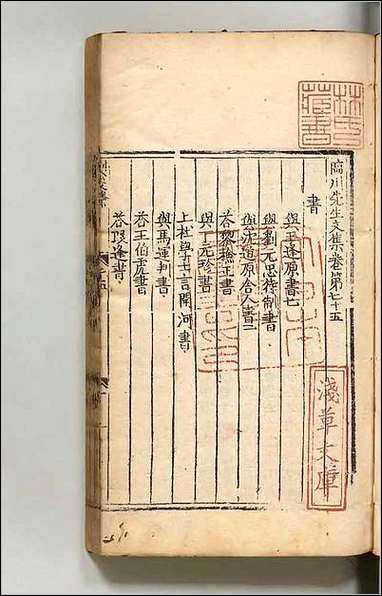 臨川先生文集卷第七十五
書
與王逢原書七
與劉元忠待制書
與沈道原舍人書二
答黎檢正書
與丁元珍書
上杜學士言開河書
與馬運判書
答王伯虎書
答段逢書
林氏藏書
淺草文庫